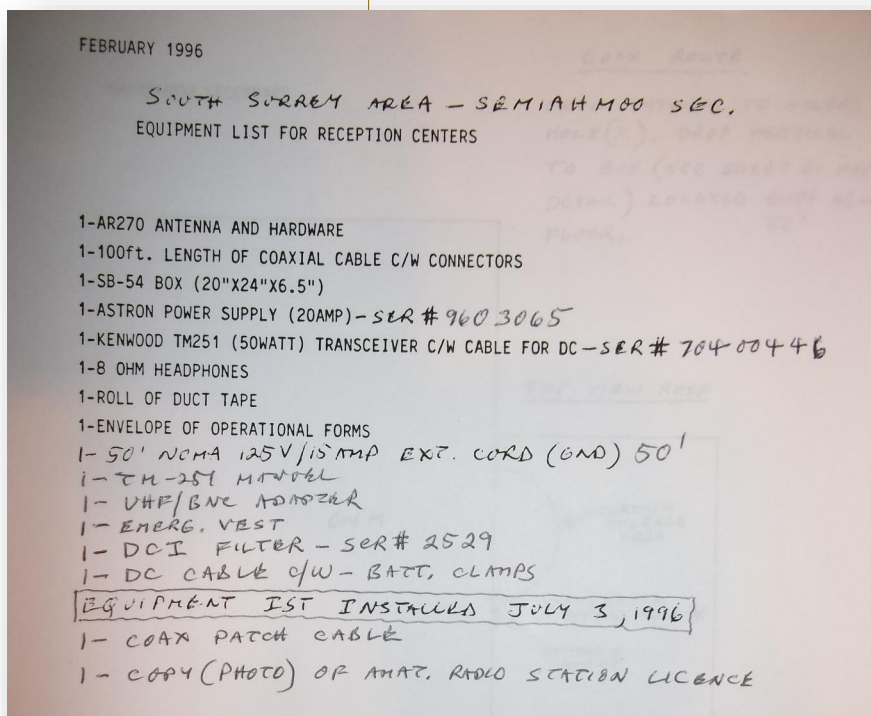 FEBRUARY 1996
SOUTH SURREY AREA - SEMIAHMOO SEC.
EQUIPMENT LIST FOR RECEPTION CENTERS
1-AR270 ANTENNA AND HARDWARE
1-100ft. LENGTH OF COAXIAL CABLE C/W CONNECTORS
1-SB-54 BOX (20"X24"X6.5")
1-ASTRON POWER SUPPLY (20AMP)-SER # 9603065
1-KENWOOD TM251 (50WATT) TRANSCEIVER C/W CABLE FOR DC-SER # 70400446
1-8 OHM HEADPHONES
1-ROLL OF DUCT TAPE
1-ENVELOPE OF OPERATIONAL FORMS
1- 50' NOMA 125V/15AMP EXT. CORD (GND) 50'
1- TM-251 MANUEL
1- UHF/BNC ADAPTER
1- EMERG. VEST
1- DCI FILTER - SER# 2529
1- DC CABLE C/W - BATT. CLAMPS
EQUIPMENT IST INSTALLED JULY 3, 1996
1- COAX PATCH CABLE
1- COPY (PHOTO) OF AMAT. RADIO STATION LICENCE
COAX ROUTE
TOP VIEW ROOF